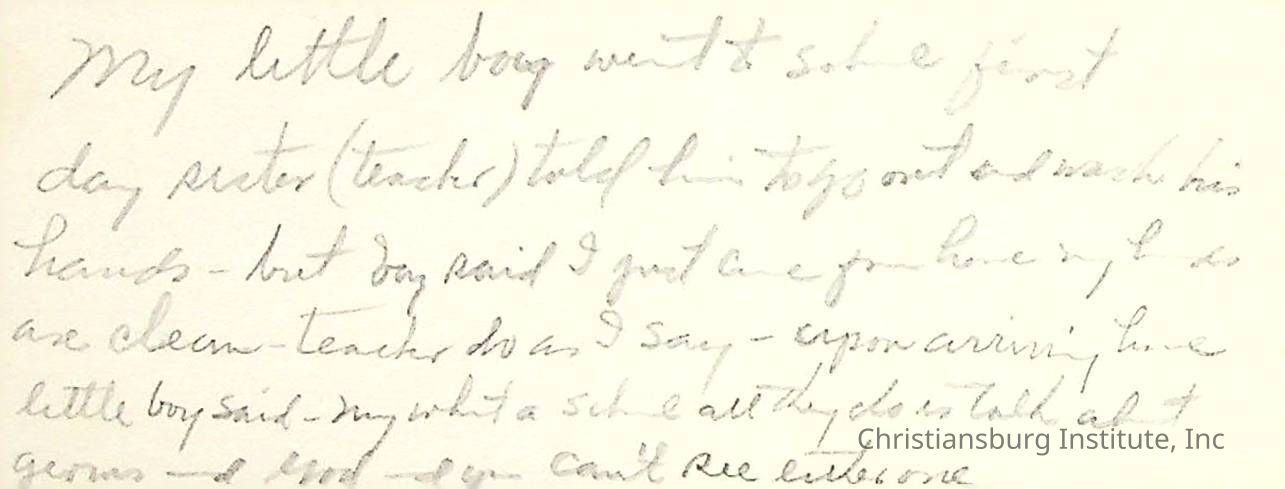 My little boy went to schol first
day sister (teacher) told him to go out and wash his
hands - but boy said I just came from home my hands
are clean - teacher do as I say - upon arriving home
little boy said - my what a schol all they do is talk about
germs and God and you can't see either one
Christiansburg Institute, Inc